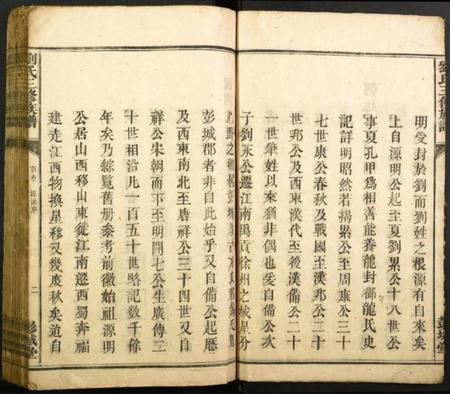 劉氏三修族譜
彭城堂
明受封於劉而劉姓之根源有自來矣
上自源明公起至夏劉累公十八世公
事夏孔甲為相善能養龍封御龍氏史
記詳明昭然若揚累公至周康公三十
七世康公春秋及戰國至漢邦公二十
世邦公及西東漢代至後漢備公二十
一世肇姓以來猶非偶也爰自備公次
子劉永公遷江南禹貢徐州之城星分
彭城郡者非自此始乎又自備公起歷
及西東南北至唐祥公三十四世又自
祥公宋朝而下至明開七八公生廣傳二
十世相沿凡一百五十世略記數千餘
年矣乃綜覽舊册參考前徽始祖源明
公居山西移山東徙江南遷西蜀奔福
建走江西物換星移又幾度秋矣迨自
劉氏三修族譜
二
彭城堂